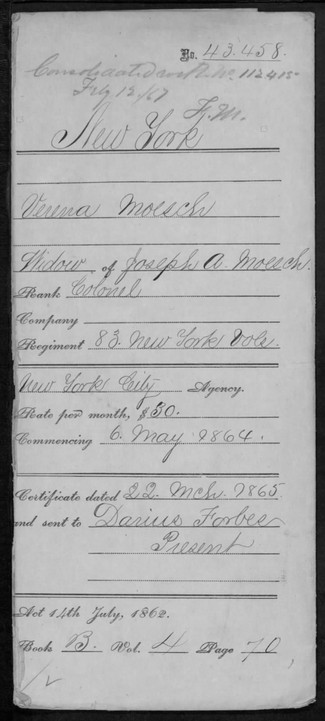 No. 43.458.
Consolidated with No. 112415
Feby 12/67
F.M.
New York
Verena Moesch
Widow of Joseph A. Moesch.
Rank Colonel
Company
Regiment 83. New York Vols
New York City Agency.
Rate per month, $30.
Commencing 6. May 1864.
Certificate dated 22. Mch. 1865
and sent to Darius Forbes
Present
Act 14th July, 1862.
Book B. Vol. 4 Page 70